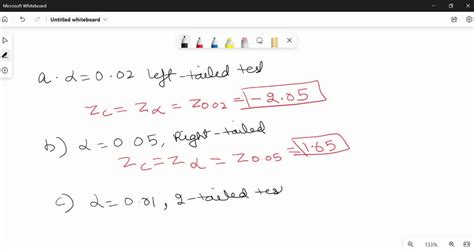 Microsoft Whiteboard
Untitled whiteboard
a. α = 0.02 left-tailed tes
Zc = Zα = Z0.02 = -2.05
b) α = 0.05, Right-tailed
Zc = Zα = Z0.05 = 1.65
c) α = 0.01, 2-tailed tes
133%